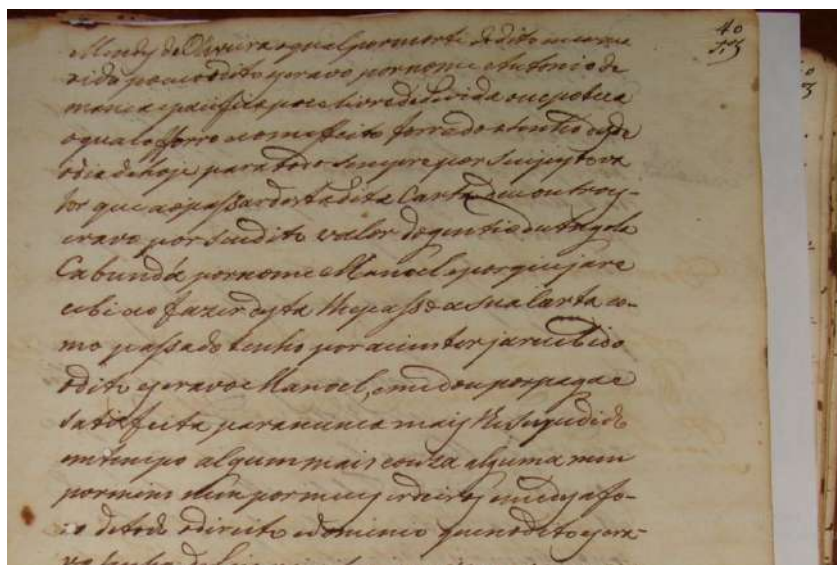 40
Mendes de Oliveira o qual por morte do dito meo ma
rido pocuo dito escravo por nome Antonio de
mança e pacifica poce livre de divida ou epoteca
o qual o fforro e com effeito forrado o tenho desde
odia de hoje para todo sempre por seu justo va
lor que ao passar desta dita Carta deu outro es-
cravo por seu dito valor do gentio de Angola
Cabundá por nome Manoel, e por que ja re
cebi ao fazer desta lhe passo a sua Carta co-
mo passado tenho por acim ter ja recebido
o dito escravo Manoel, e me dou por paga e
satisfeita para nunca mais lhe ser pedido
em tempo algum mais couza alguma nem
por mim nem por meus erdeiros
de todo o direito e dominio que no dito escra-
vo tenho